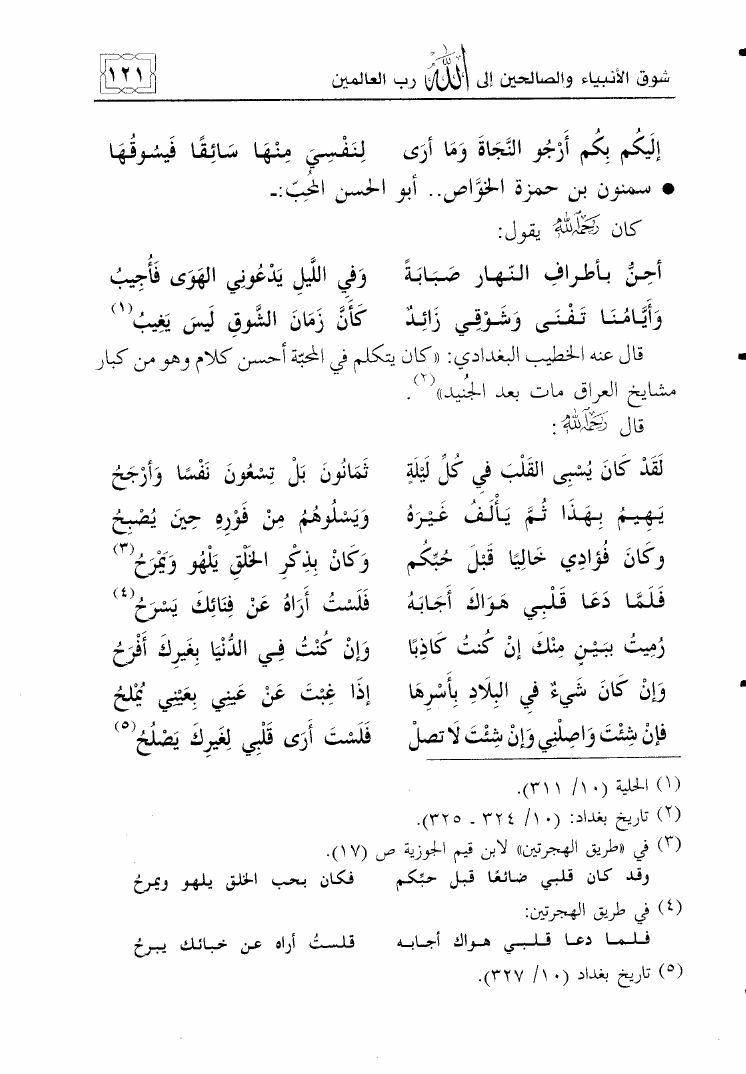 شوق الأنبياء والصالحين إلى الله رب العالمين ١٢١
إِلَيكُم بِكُم أَرْجُو النَّجَاةَ وَمَا أرَى لِنَفْسِيَ مِنْهَا سَائِقًا فَيسُوقُهَا
● سمنون بن حمزة الخوَّاص.. أبو الحسن المُحِبّ:ـ
كان رَحِمَهُ اللهُ يقول:
أحِنُّ بأطرافِ النّهارِ صَبَابَةً وَفي اللَّيلِ يَدْعُوني الهَوَى فَأُجِيبُ
وَأيَّامُنَا تَفْنَى وَشَوْقِي زَائِدٌ كَأَنَّ زَمَانَ الشَّوقِ لَيسَ يَغِيبُ(١)
قال عنه الخطيب البغدادي: «كان يتكلم في المحبّة أحسن كلام وهو من كبار
مشايخ العراق مات بعد الجُنيد»(٢).
قال رَحِمَهُ اللهُ:
لَقَدْ كَانَ يُسْبِى القَلْبَ في كُلِّ لَيْلَةِ ثَمَانُونَ بَلْ تِسْعُونَ نَفْسًا وَأرْجَحُ
يَهِيمُ بِهَذَا ثُمَّ يَأْلَفُ غَيْرَهُ وَيَسْلُوهُمُ مِنْ فَوْرِهِ حِينَ يُصْبِحُ
وكَانَ فُؤَادِي خَالِيًا قَبْلَ حُبِّكُم وَكَانْ بِذِكْرِ الخَلْقِ يَلْهُو وَيَمْرَحُ(٣)
فَلَمَّا دَعَا قَلْبِي هَوَاكَ أجَابَهُ فَلَسْتُ أرَاهُ عَنْ فِنَائِكَ يَسْرَحُ(٤)
رُمِيتُ بِبَيْنٍ مِنْكَ إنْ كُنتُ كَاذِبًا وَإنْ كُنْتُ فِي الدُّنْيَا بِغَيرِكَ أفْرَحُ
وَإنْ كَانَ شَيءٌ في البِلَادِ بِأَسْرِهَا إذَا غِبْتَ عَنْ عَينِي بِعَيْنِي يُمْلَحُ
فَإنْ شِئْتَ وَاصِلْنِي وَإنْ شِئْتَ لَا تصلْ فَلَسْتَ أرَى قَلْبِي لِغَيرِكَ يَصْلُحُ(٥)
(١) الحلية (١٠/ ٣١١).
(٢) تاريخ بغداد: (١٠/ ٣٢٤ ـ ٣٢٥).
(٣) في «طريق الهجرتين» لابن قيم الجوزية ص (١٧).
وقد كان قلبي ضائعًا قبل حبّكم فكان بحب الخلق يلهو ويمرحُ
(٤) في طريق الهجرتين:
فلما دعا قلبي هواك أجابه قلستُ أراه عن خبائك يبرحُ
(٥) تاريخ بغداد (١٠/ ٣٢٧).